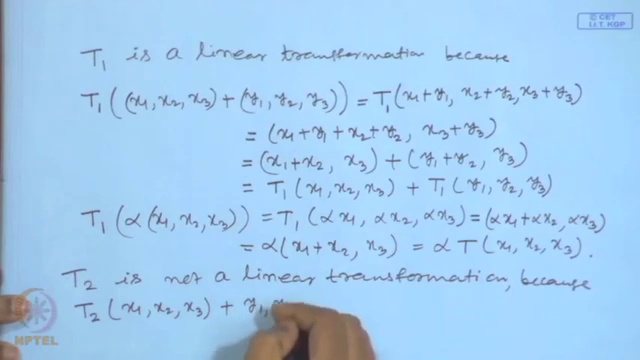 © CET
I.I.T. KGP
T₁ is a linear transformation because
T₁((x₁, x₂, x₃) + (y₁, y₂, y₃)) = T₁(x₁+y₁, x₂+y₂, x₃+y₃)
= (x₁+y₁+x₂+y₂, x₃+y₃)
= (x₁+x₂, x₃) + (y₁+y₂, y₃)
= T₁(x₁, x₂, x₃) + T₁(y₁, y₂, y₃)
T₁(α(x₁, x₂, x₃)) = T₁(αx₁, αx₂, αx₃) = (αx₁+αx₂, αx₃)
= α(x₁+x₂, x₃) = αT(x₁, x₂, x₃).
T₂ is not a linear transformation, because
T₂(x₁, x₂, x₃) + y₁,
NPTEL